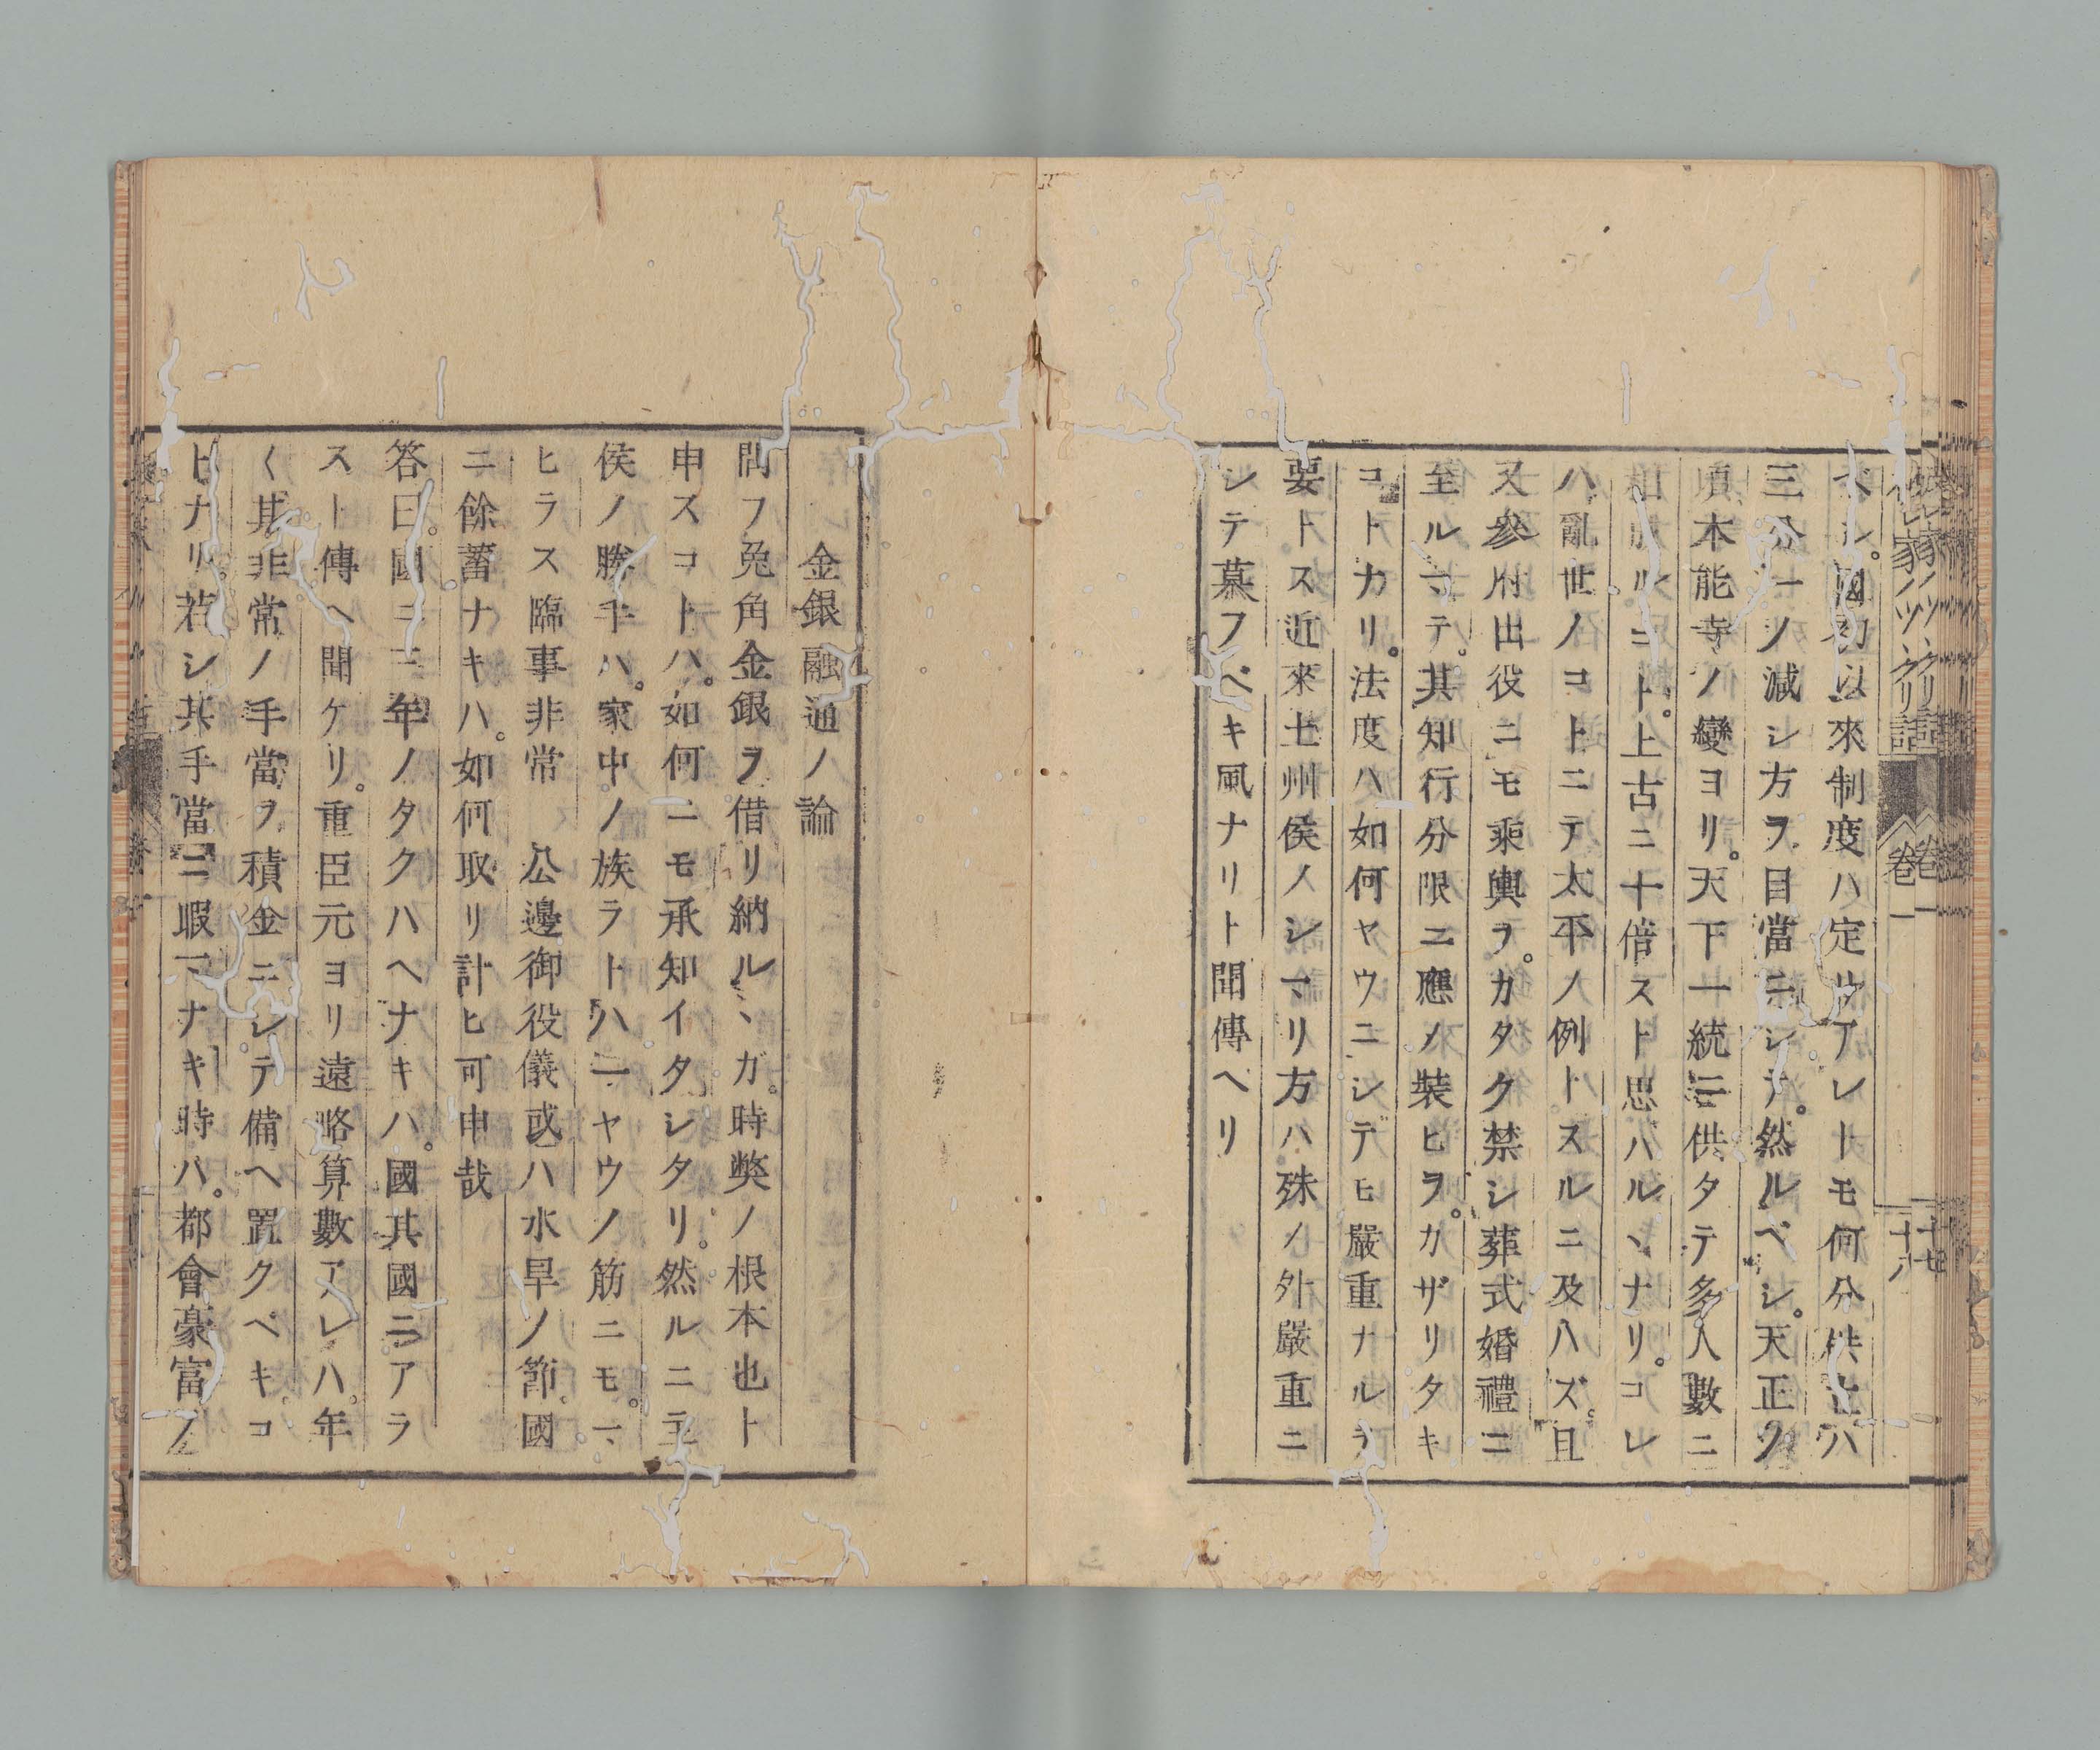 ベシ。國初以來制度ハ定リアレトモ何分供立ハ
三分一ノ減シ方ヲ目當ニシテ。然ルベシ。天正ノ
頃本能寺ノ變ヨリ。天下一統ニ供タテ多人數ニ
ルコト。上古ニ十倍スト思ハルヽナリ。コレ
ハ亂世ノコトニテ太平ノ例トスルニ及ハズ。且
又參府出役ニモ乘輿ヲ。カタク禁シ葬式婚禮ニ
至ルマテ。其知行分限ニ應ノ裝ヒヲ。カザリタキ
コトカリ。法度ハ如何ヤウニシデモ嚴重ナルヲ
要トス近來土州侯ノシマリ方ハ殊ノ外嚴重ニ
シテ慕フベキ風ナリト聞傳ヘリ
巻一
十八
金銀融通ノ論
問フ兎角金銀ヲ借リ納ルヽガ。時弊ノ根本也ト
申スコトハ。如何ニモ承知イタシタリ。然ルニ諸
侯ノ勝手ハ。家中ノ族ラトハ一ヤウノ筋ニモ。マ
ヒラス臨事非常 公邊御役儀或ハ水旱ノ節。國
ニ餘蓄ナキハ。如何取リ計ヒ可申哉
答曰。國ニ三年ノタクハヘナキハ。國其國ニアラ
スト傳ヘ聞ケリ。重臣元ヨリ遠略算數アレハ。年
〱其非常ノ手當ヲ積金ニシテ備ヘ置クベキコ
トナリ。若シ其手當ニ暇マナキ時ハ。都會豪富ノ